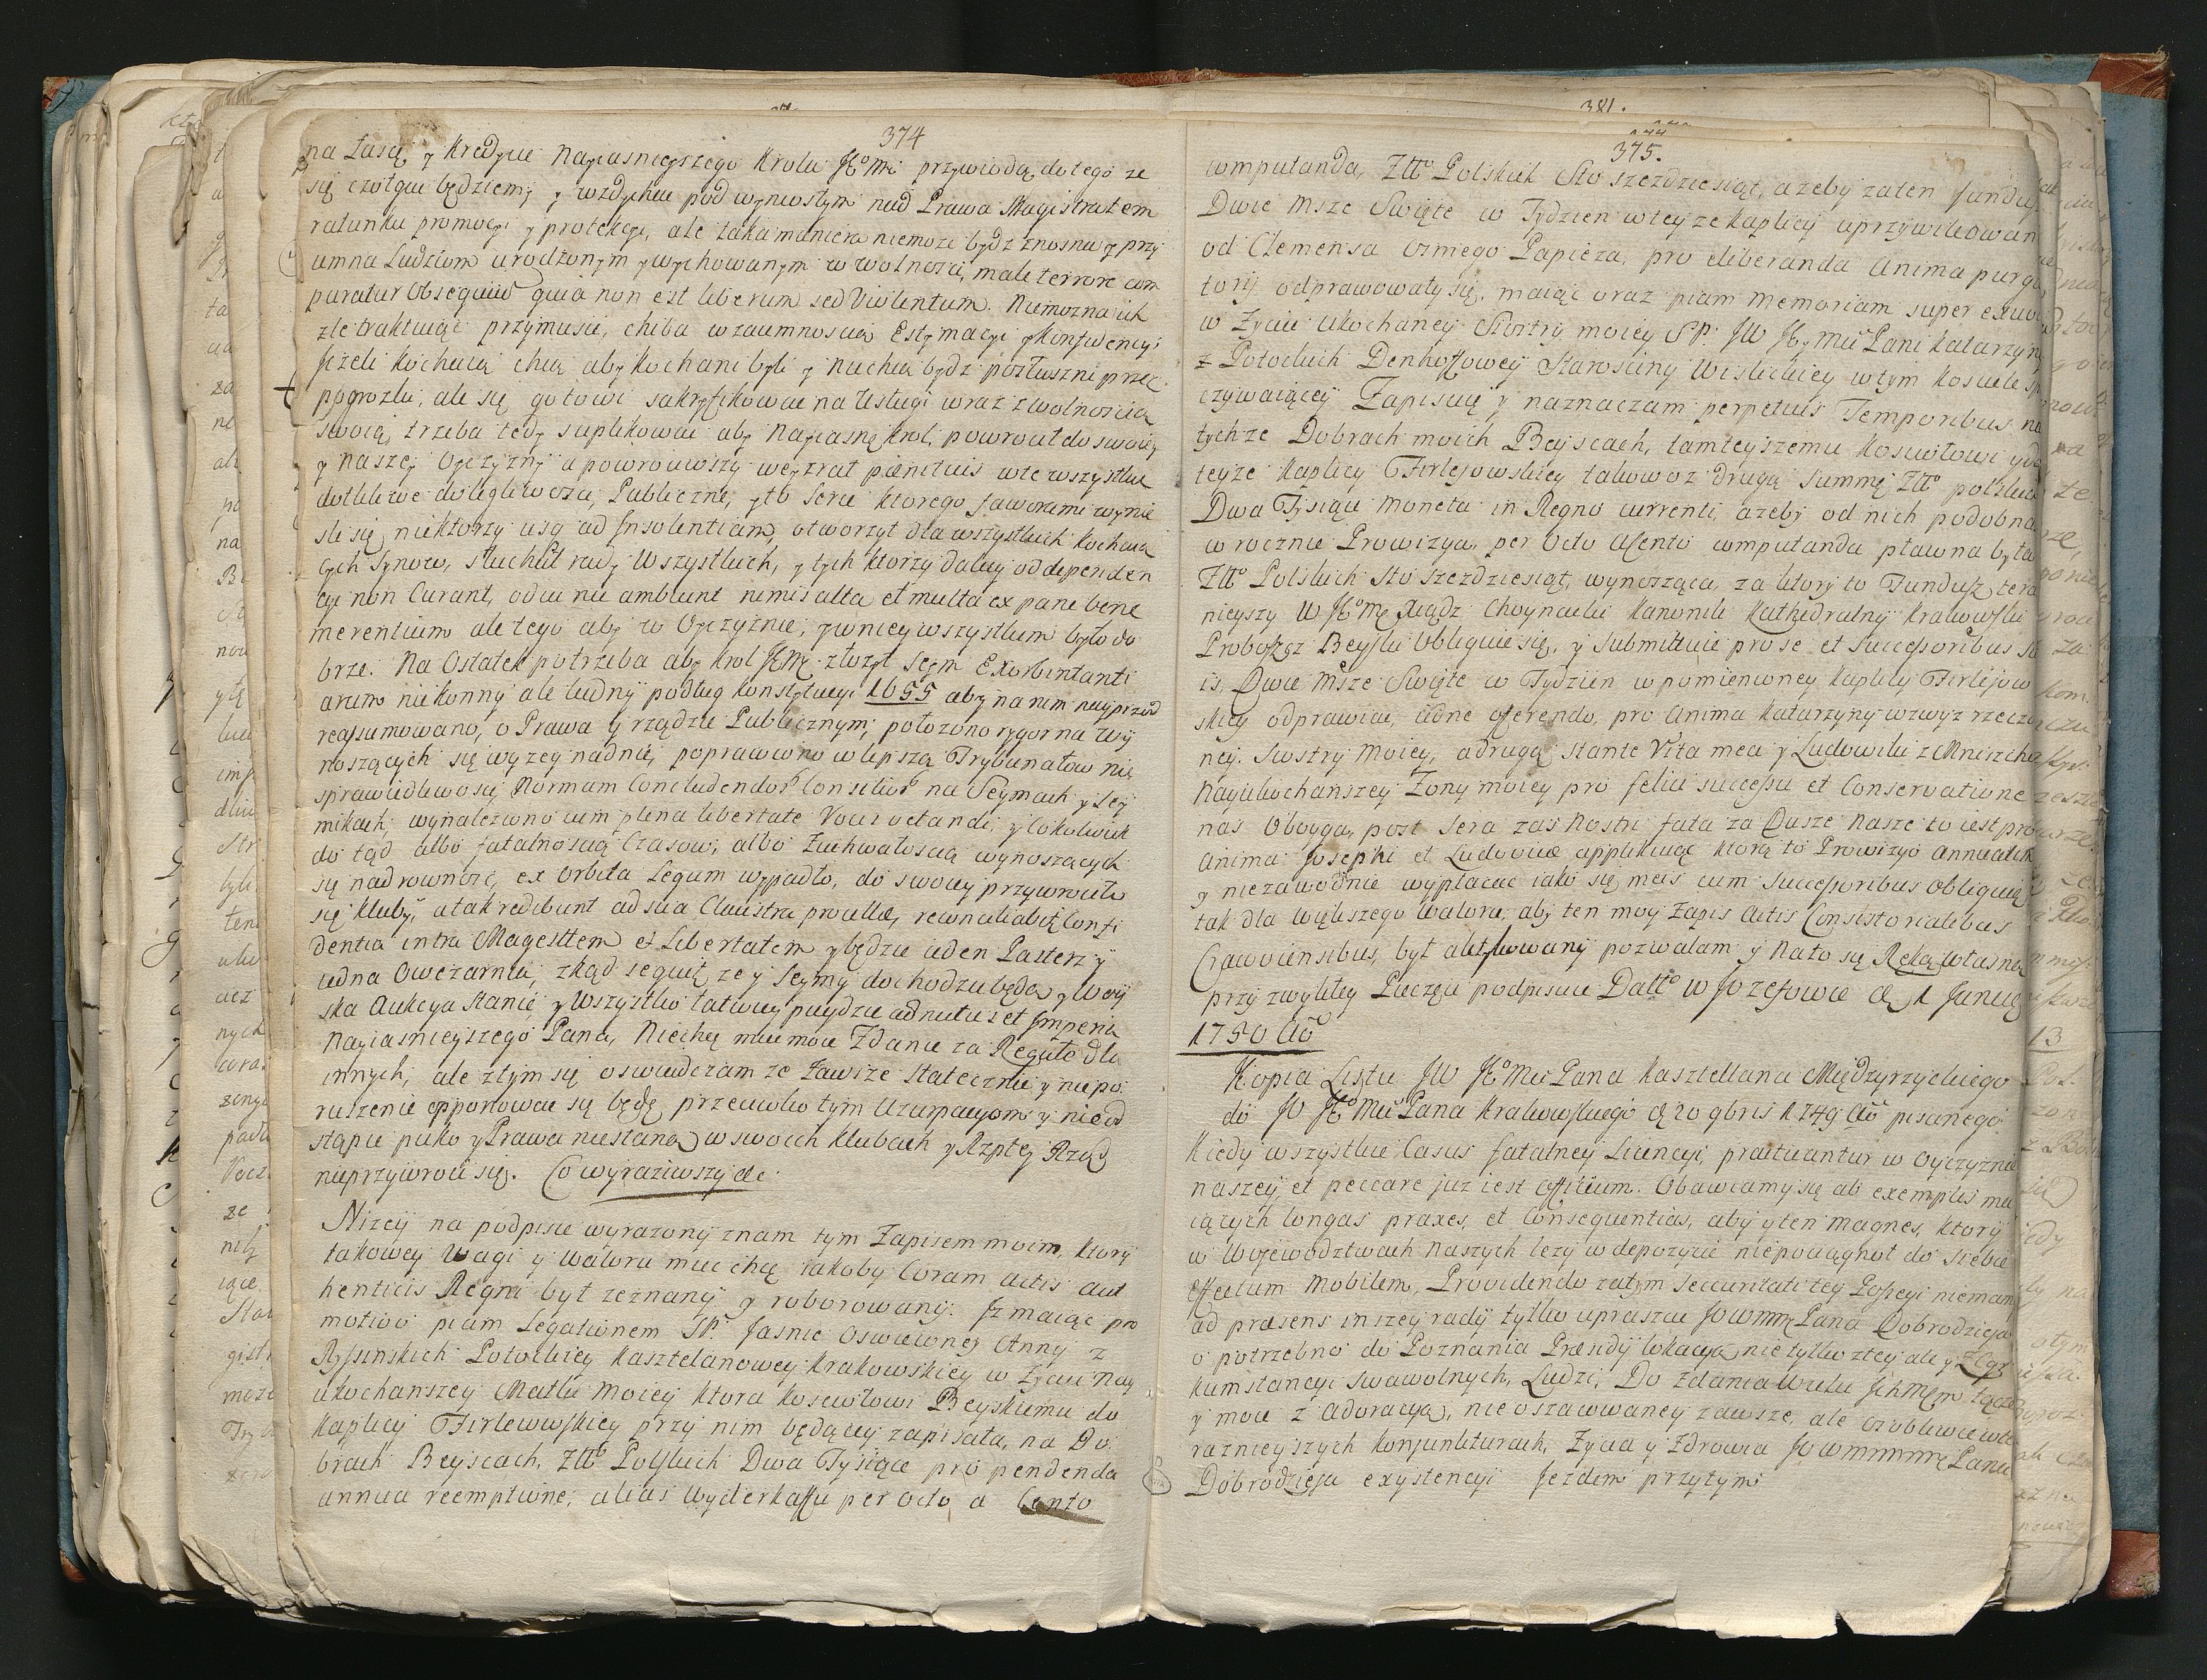 374
na Łasą y Kredycie Nayiasnieyszego Krola JEoMci przywiodą do tego ze
się czołgać będziemy y wzdychać pod wyniosłym nad Prawa Magistratem
ratunku promocyi y protekcyi, ale taka maniera niemoze bydz znosna y przy
iemna Ludziom urodzonym y wychowanym w wolności, male terrore com
paratur Obsequium quia non est liberum sed Violentum. Niemozna ich
zle traktuiąc przymusić, chiba wzaiemnoscią Estymacyi y Konfidencyi
Jeżeli kochacią chcą aby kochani byli y niechcą bydz posłuszni przez
pogrozki, ale się gotowi sakryfikować na Usługi wraz z wolnoscią
swoią, trzeba tedy suplikować aby Nayiasny Krol powrocił do swoiey
y naszey Oyczyzny a powrociwszy weyzrał penitius wte wszystkie
dotkliwe dolegliwosci, Publiczne, y to serce ktorego faworami wynie
sli się niektorzy usq ad Insolentiam, otworzył dla wszystkich kochaią
cych Synow, słuchał rady Wszystkich, y tych ktorzy daley od dependen
cyi non Curant, od ciu nie ambiunt nimis alta et multa ex pane bene
merentium ale tego aby w Oyczyznie, y wniey wszystkim było do
brze. Na Ostatek potrzeba aby Krol JEMc złozył Seym Exorbintanti
arum niekonny ale ludny podług konstytucyi 1655 aby na nim nayprzod
reassumowano, o Prawa y rządzie Publicznym, połozono rygor na Wy
noszących się wyzey nadniey poprawiono w lepszą Trybunałow nie
sprawiedliwosci, Normam Concludendor Consilior na Seymach y Sey
mikach, wynaleziono cum plena libertate Voci votandi, y cokolwiek
do tąd albo fatalnoscią Czasow, albo Zuchwałoscią wynoszących
się nad rownosć, ex Orbita Legum wypadło, do swoiey przywrociło
się kluby, a tak redibunt ad sua Claustra procellæ, reconciliabit Confi
dentia intra Magesttem et Libertatem y będzie ieden Pasterz y
iedna Owczarnia, zkąd sequit, ze y Seymy dochodzić będą y Woy
ska Aukcya stanie y Wszystko łatwiey puydzie ad nutus et Imperia
Nayiasnieyszego Pana, Niechcę miec moie Zdanie za Regułę dla
innych, ale ztym się oswiadczam ze Zawsze statecznie y niepo
ruszenie opponować się będę przeciwko tym Uzurpacyom y nieod
stąpie poko y Prawa niestaną w swoich klubach y Rzptey Rząd
nieprzywroci się. Co wyraziwszy etc.
Nizey na podpisie wyrazony znam tym Zapisem moim, ktory
takowey Wagi y Waloru miec chcę iakoby Coram Actis Aut
henticis Regni byt zeznany y roborowany. Iz maiąc pro
motivo piam Legationem SP. Jasnie Oswieconey Anny z
Rysinskich Potockiey Kasztelanowey Krakowskiey w Zyciu Nay
ukochanszey Matki moiey ktora Kosciołowi Beyskiemu do
Kaplicy Firlewowskiey przy nim będącey zapisała, na Do
brach Beyscach, Złło Polskich Dwa Tysiące pro pendenda
annua reemptione, alias Wyderkaffu per Octo a Cento
381.
375.
computanda, Złło Polskich Sto szezdziesiąt, azeby zaten fundusz
Dwie Msze Swięte w Tydzien wteyze Kaplicy uprzywileiowan
od Clemensa Osmego Papieża, pro eliberanda Anima purga
torij odprawowały się, maiąc oraz piam Memoriam super exuvi
w Zyciu Ukochaney Siostry moiey SP. JW JEyMci Pani Katarzyny
z Potockich Denhoffowey Starosciny Wislickiey wtym Kosciele sp
czywaiącey Zapisuię y naznaczam perpetuis Temporibus na
tychze Dobrach moich Beyscach, tamteyszemu Kosciołowi y do
teyze Kaplicy Firlejowskiey takowoz drugą Summę Złło polskich
Dwa Tysiące moneta in Regno currenti, azeby od nich podobna
w rocznie Prowizya, per Octo a Cento computanda płacona była
Złło Polskich Sto Szezdziesiąt, wynosząca, za ktory to Fundusz tera
nieyszy W JEoMc Xiądz Choynacki Kanonik Kathedralny Krakowski
Proboszcz Beyski Obliguie się, y submittuie pro se et Successoribus su
is, Dwie Msze Swięte w Tydzień w pomienioney Kaplicy Firlejow
skiey odprawiać, iedne oferendo, pro Anima Katarzyny wzwyz rzeczo
ney. Siostry Moiey, adrugą stante Vita mea y Ludowiki z Mniszcho
Nayukochanszey Zony moiey pro felici successu et Conservatione
nas Oboyga, post sera zas Nostri fata za Dusze Nasze to iest pro
Anima Josephi et Ludovicæ applikuiąc ktorą to Prowizyo Annuatim
y niezawodnie wypłacac iako się meis cum Successoribus obliguię
tak dla większego Waloru, aby ten moy zapis Actis Consistorialibus
Cracoviensibus, był aktykowany pozwalam y Nato się Ręką własną
przy zwykłey Pieczęci podpisuie Datto w Jozefowie d. 1 Januarij
1750 Ao
Kopia Listu JW JEoMci Pana Kasztellana Międzyrzyckiego
do JO JEoMci Pana Krakowskiego d. 20 9bris 1749 Ao pisanego
Kiedy wszystkie Casus fatalney Licencyi, practicantur w Oyczyznie
naszey, et peccare juz iest officium. Obawiamy się ab exemplis ma
iących longas praxes, et Consequentias, aby y ten magnes, ktory
w Woiewodztwach Naszych lezy w depozycie niepociągnoł do siebie
Affectum mobilem, Providendo zatym Securitati tey Possesyi niemam
ad præsens inszey rady tylko upraszać JOWMMc Pana Dobrodzieja
o potrzebno do Poznania Præsidÿ lokacyą nie tylko ztey ale y
kumstancyi Swawolnych, Ludzi, Do Zdania Wielu Ichmciow łącze
y moie z adoracyą, nie oszacowaney zawsze, ale osobliwie wte
raznieyszych Konjunkturach, Zycia y Zdrowia JOWMMMMc Pana
Dobrodzieja exystencyi Jezdem przytym